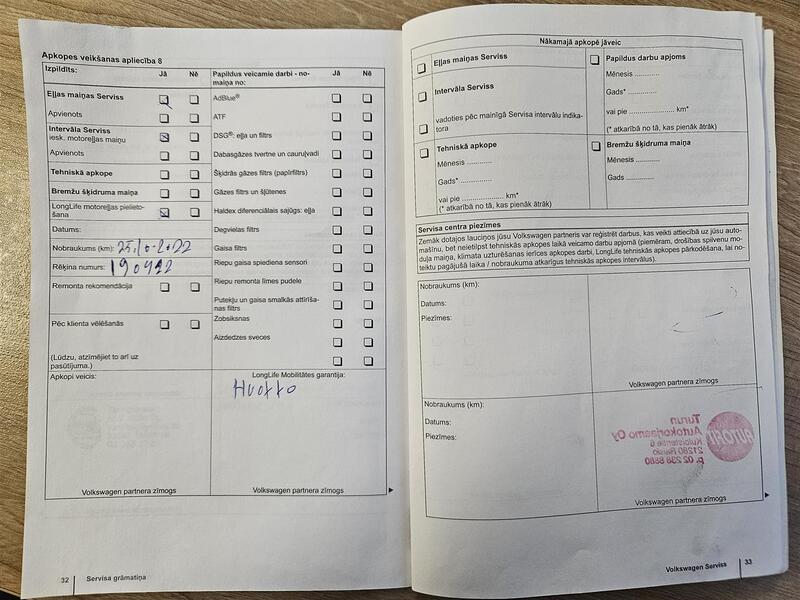 Apkopes veikšanas apliecība 8
Izpildīts: Jā Nē
Eļļas maiņas Serviss
Apvienots
Intervāla Serviss
iesk. motoreļļas maiņu
Apvienots
Tehniskā apkope
Bremžu šķidruma maiņa
LongLife motoreļļas pielieto-
šana
Datums:
Nobraukums (km): 25.10-2022
Rēķina numurs: 190492
Remonta rekomendācija
Pēc klienta vēlēšanās
(Lūdzu, atzīmējiet to arī uz
pasūtījuma.)
Apkopi veicis:
Volkswagen partnera zīmogs
Papildus veicamie darbi - no-
maiņa no: Jā Nē
AdBlue®
ATF
DSG®: eļļa un filtrs
Dabasgāzes tvertne un cauruļvadi
Šķidrās gāzes filtrs (papīrfiltrs)
Gāzes filtrs un šļūtenes
Haldex diferenciālais sajūgs: eļļa
Degvielas filtrs
Gaisa filtrs
Riepu gaisa spiediena sensori
Riepu remonta līmes pudele
Putekļu un gaisa smalkās attīrīša-
nas filtrs
Zobsiksnas
Aizdedzes sveces
LongLife Mobilitātes garantija:
Huolto
Volkswagen partnera zīmogs
32 Servisa grāmatiņa
Nākamajā apkopē jāveic
Eļļas maiņas Serviss
Intervāla Serviss
vadoties pēc mainīgā Servisa intervālu indika-
tora
Tehniskā apkope
Mēnesis ............
Gads* ............
vai pie ............... km*
(* atkarībā no tā, kas pienāk ātrāk)
Papildus darbu apjoms
Mēnesis ............
Gads* ............
vai pie ............... km*
(* atkarībā no tā, kas pienāk ātrāk)
Bremžu šķidruma maiņa
Mēnesis ............
Gads ............
Servisa centra piezīmes
Zemāk dotajos lauciņos jūsu Volkswagen partneris var reģistrēt darbus, kas veikti attiecībā uz jūsu auto-
mašīnu, bet neietilpst tehniskās apkopes laikā veicamo darbu apjomā (piemēram, drošības spilvenu mo-
duļa maiņa, klimata uzturēšanas ierīces apkopes darbi, LongLife tehniskās apkopes pārkodēšana, lai no-
teiktu pagājušā laika / nobraukuma atkarīgus tehniskās apkopes intervālus).
Nobraukums (km):
Datums:
Piezīmes:
Volkswagen partnera zīmogs
Nobraukums (km):
Datums:
Piezīmes:
AUTOFIT
Turun
Autokorjaamo Oy
21280 Raisio
p. 02 238 8680
Volkswagen partnera zīmogs
Volkswagen Serviss 33